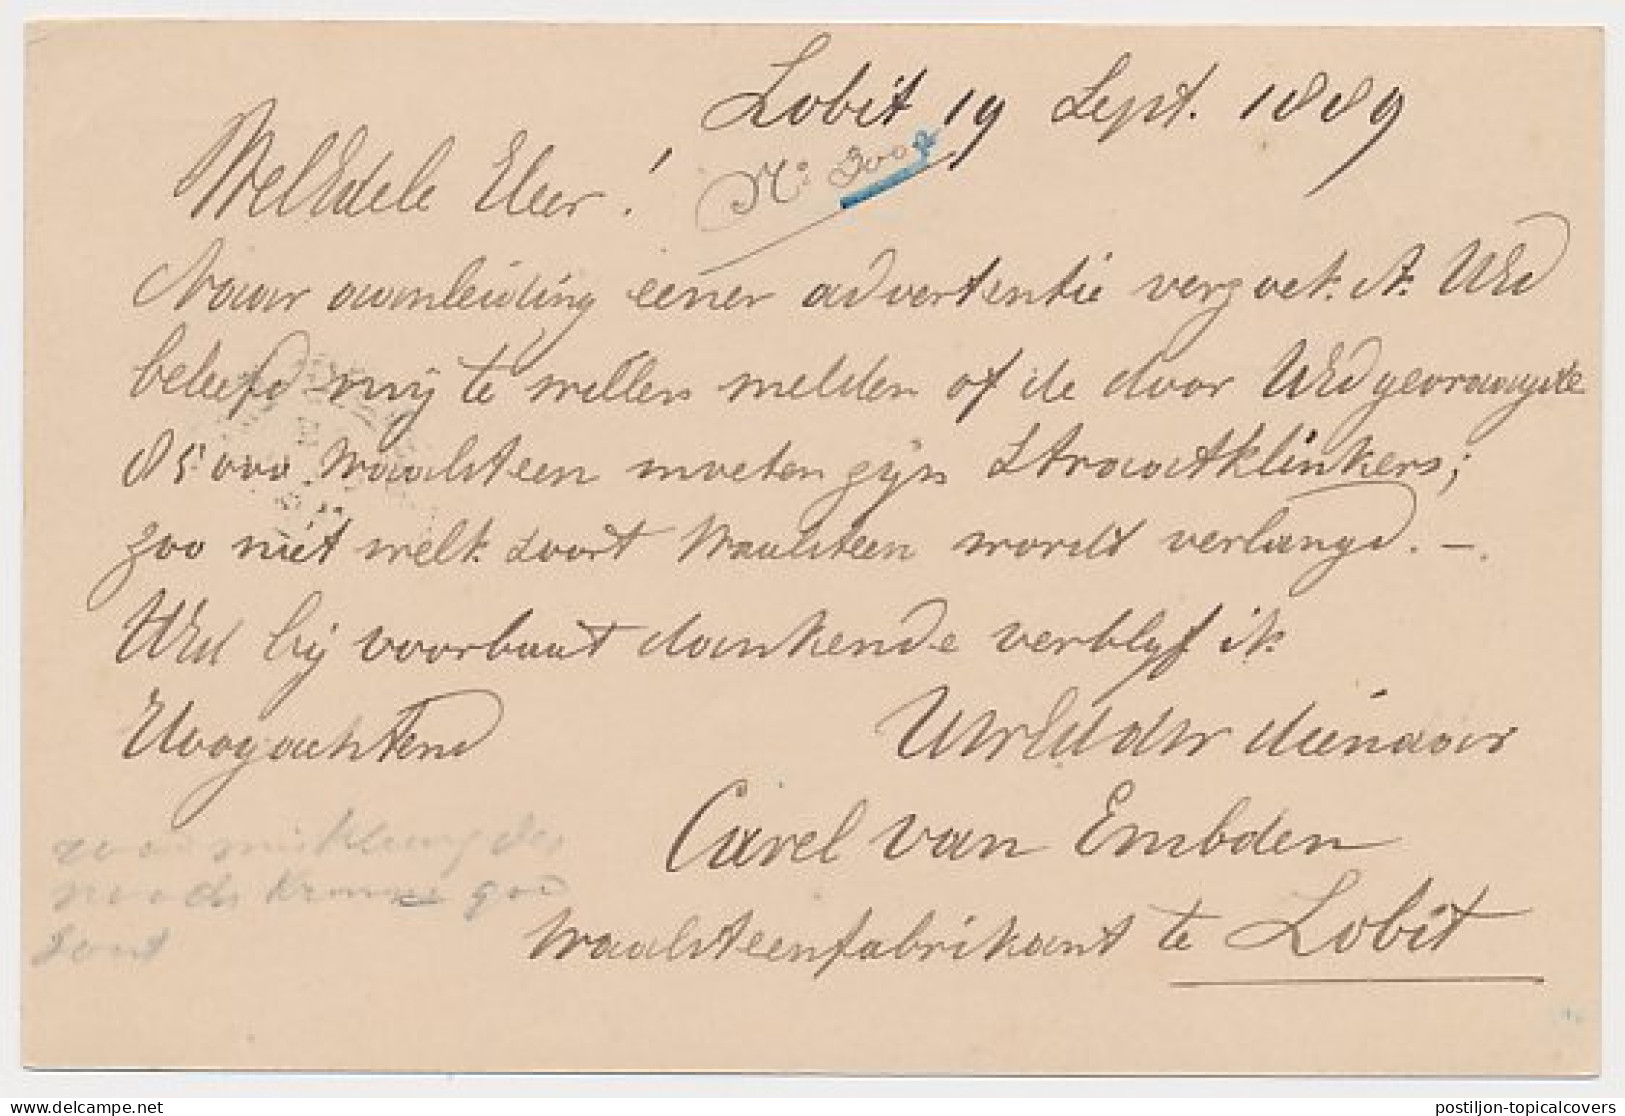 Lobit 19 Sept. 1889
WelEdele Heer!
Naar aanleiding eener advertentie verzoek ik UEd
beleefd mij te willen melden of de door UEd gevraagde
85000 Waalsteen moeten zijn Straatklinkers;
zoo niet welk soort Waalsteen wordt verlangd. –.
UEd bij voorbaat dankende verblijf ik
Hoogachtend
UwEd dw dienaar
Carel van Embden
Waalsteenfabrikant te Lobit
postiljon-topicalcovers
© 2024 delcampe.net